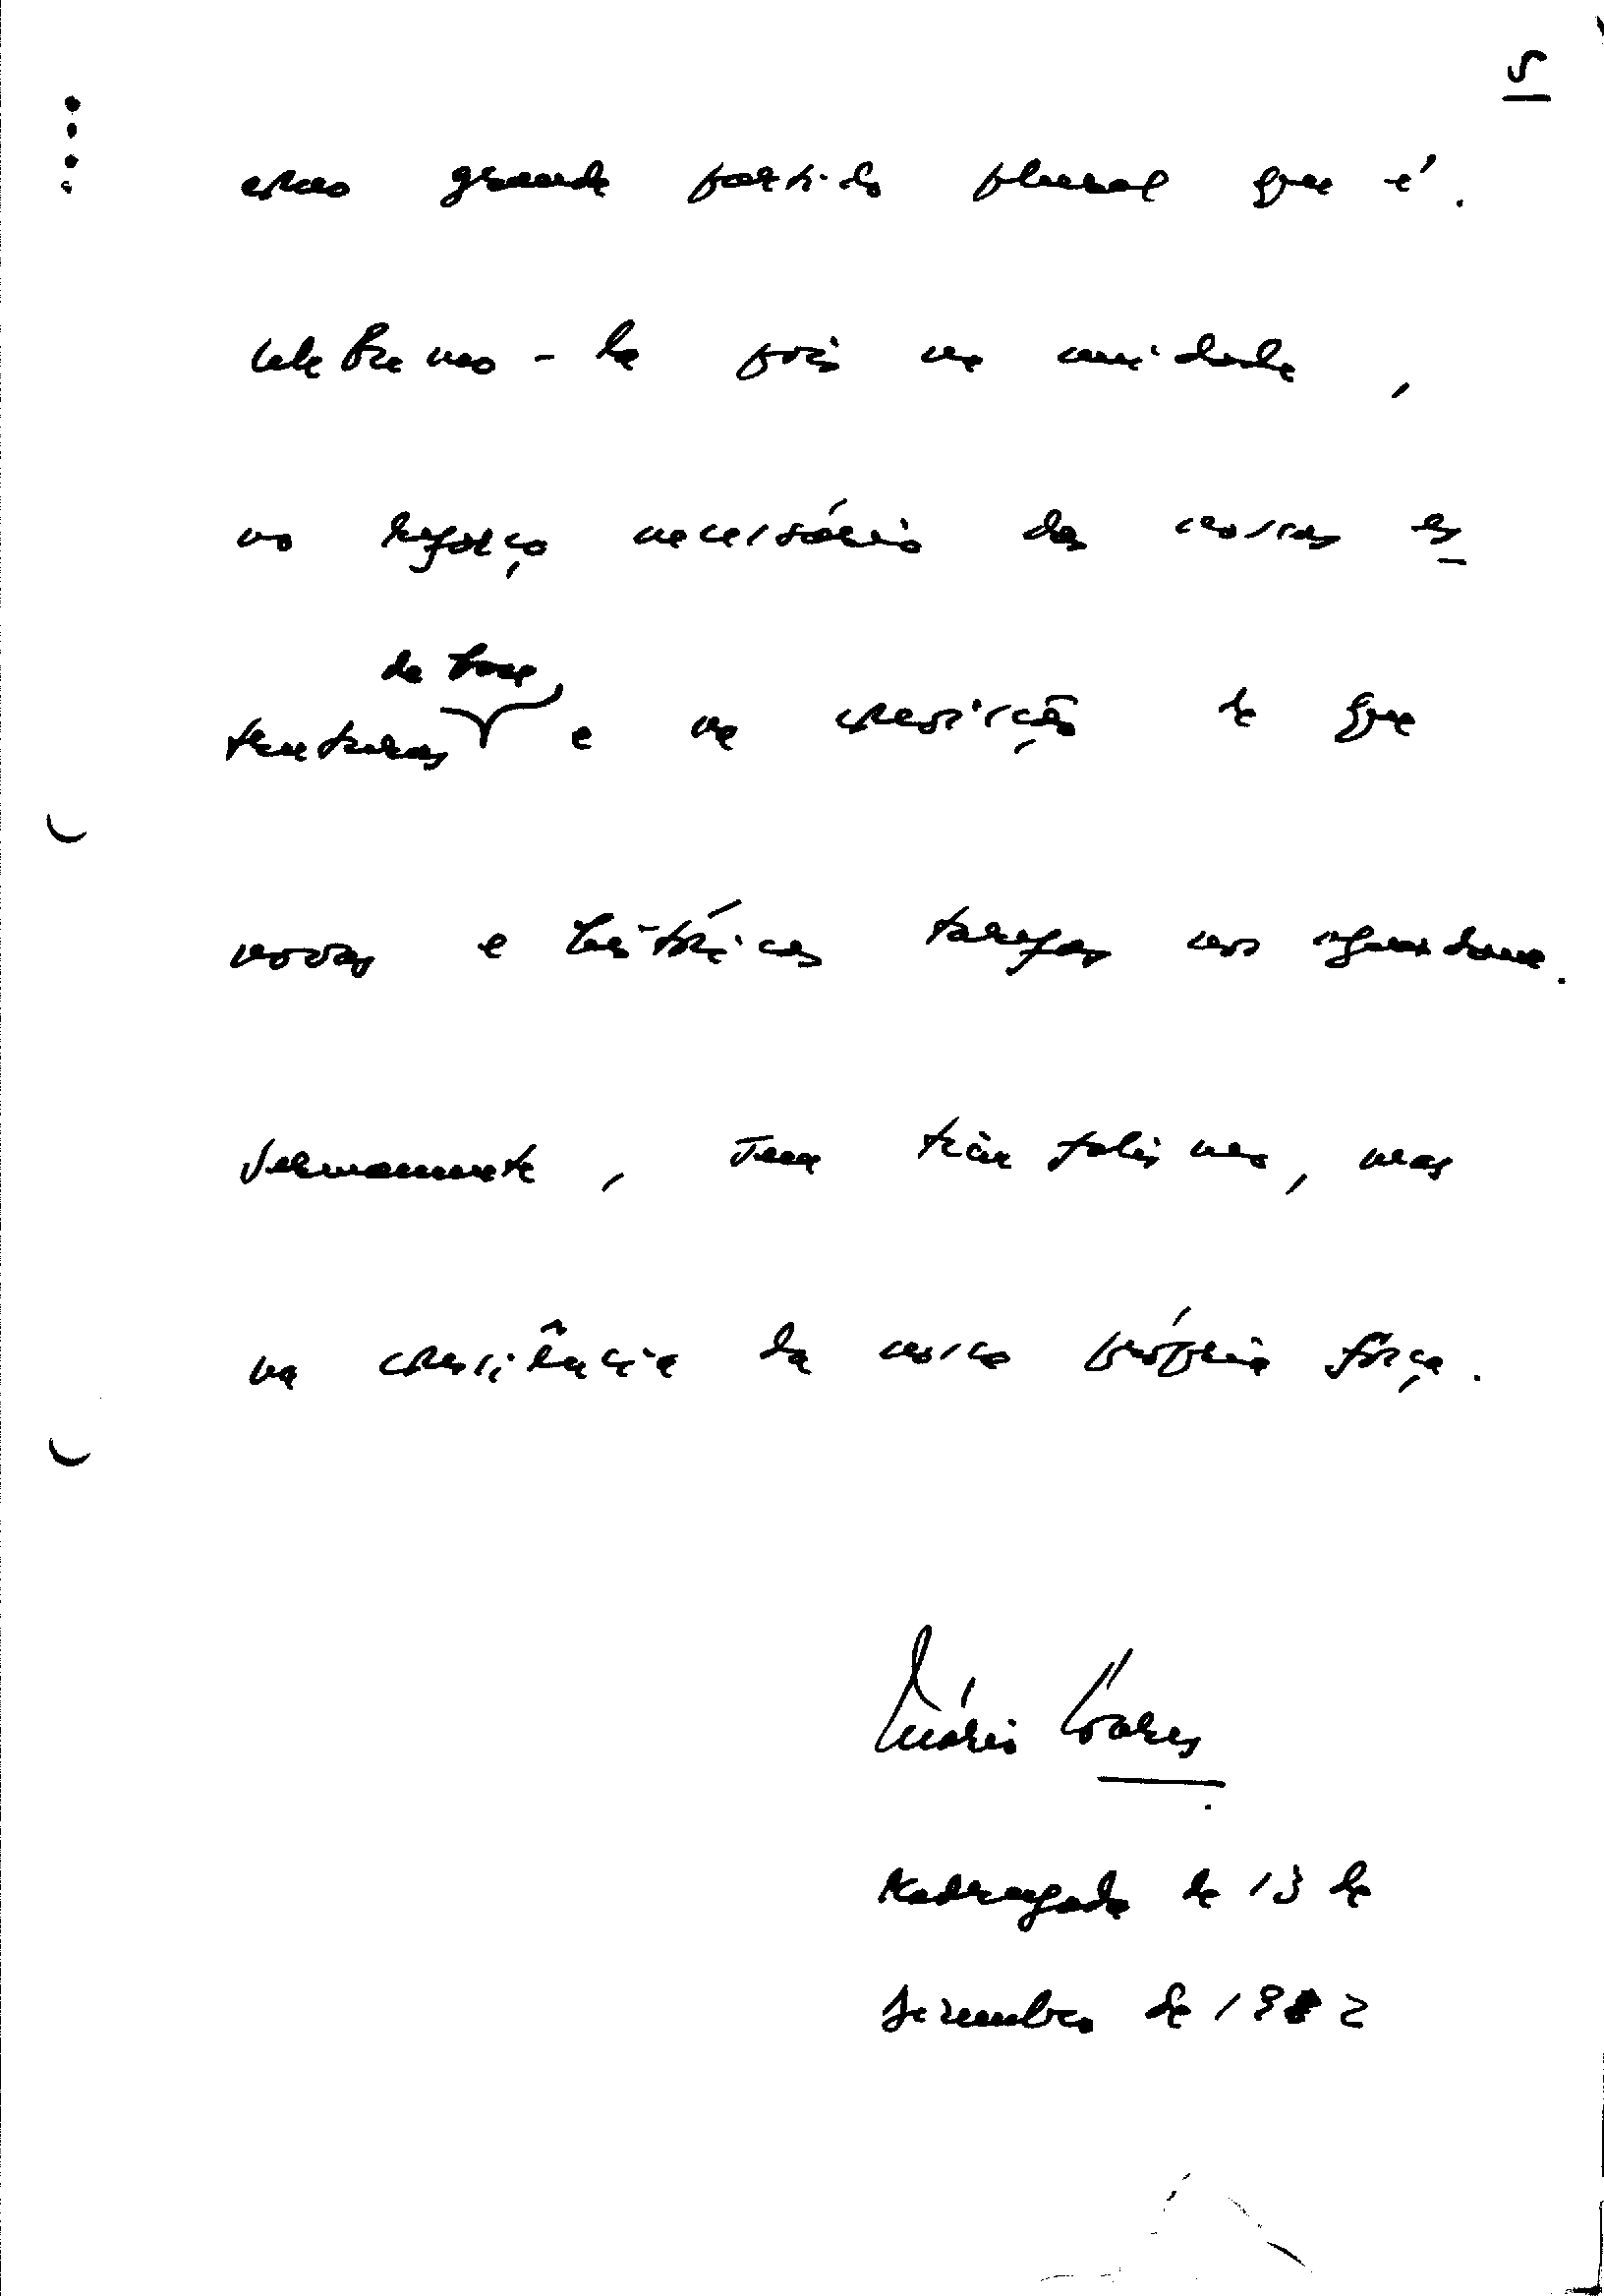 5
como grande partido plural que é.
Celebremo-la pois na unidade,
no reforço necessário das nossas es
de base,
truturas e na convicção de que
novas e históricas tarefas nos aguardam.
Serenamente, sem triunfalismos, mas
na consciência da nossa própria força.
Mário Soares
Madrugada de 13 de
dezembro de 1982